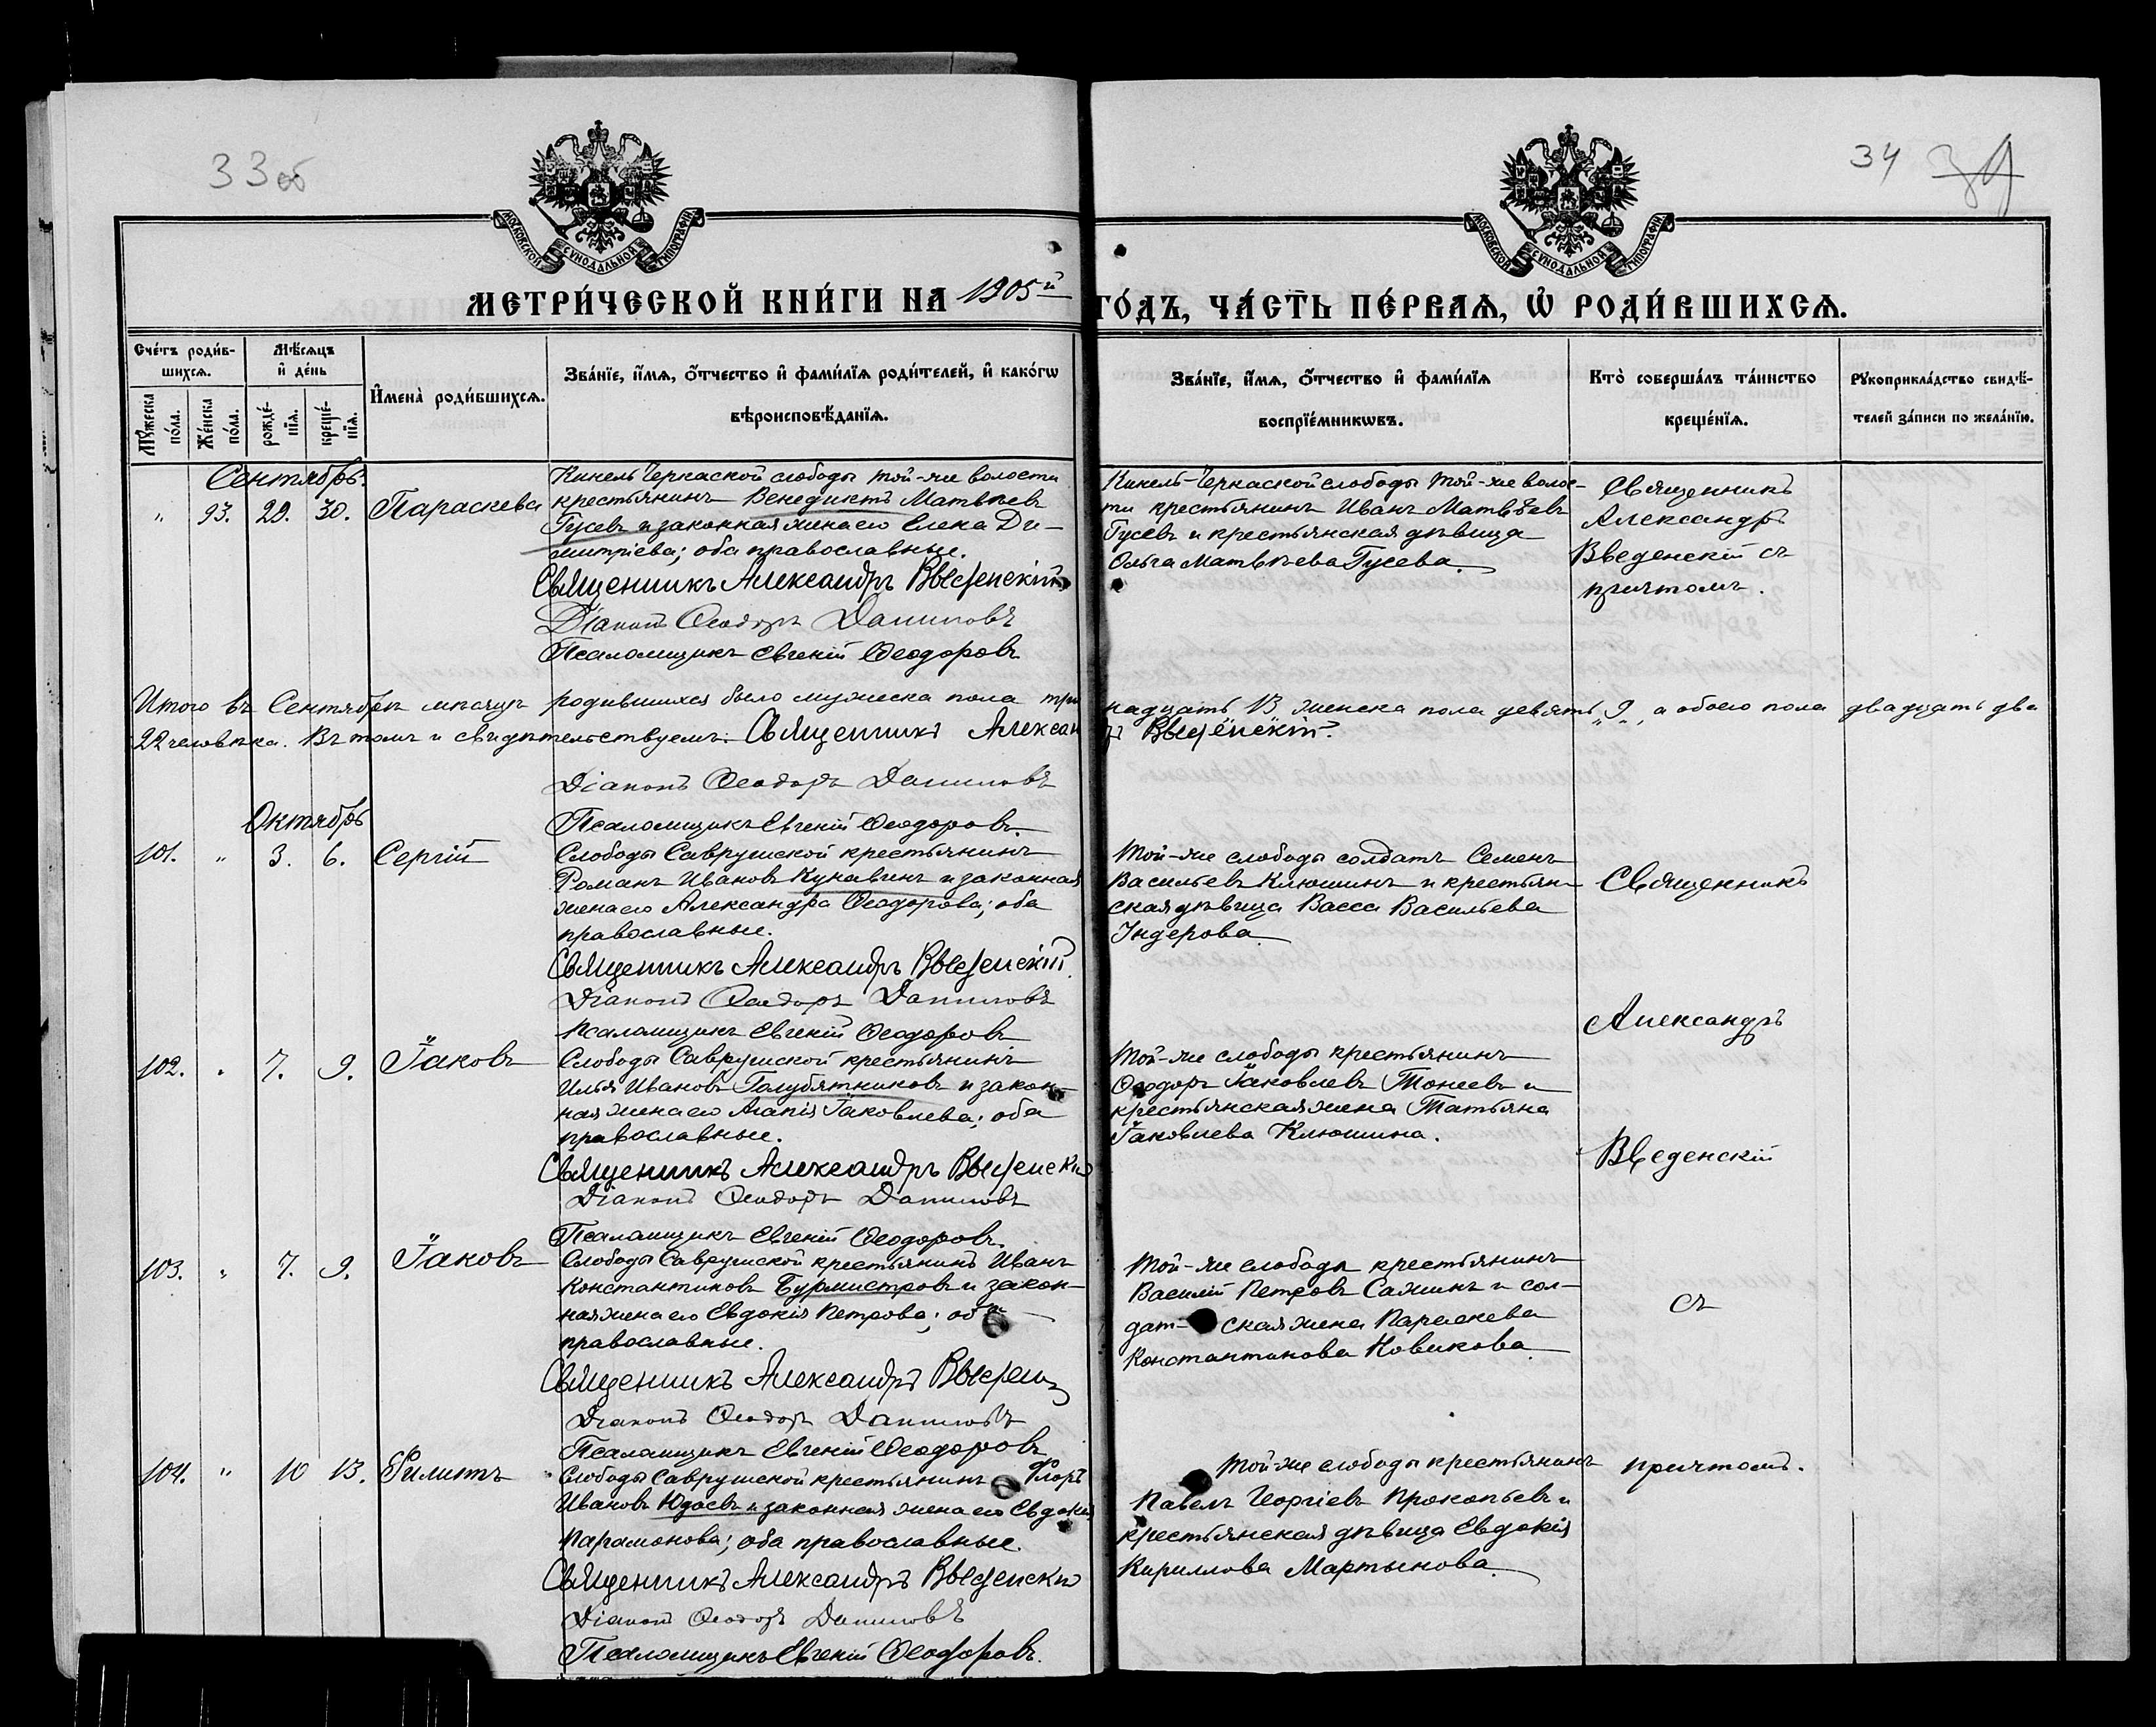 33об
34 34
МОСКОВСКОЙ СѴНОДАЛЬНОЙ ТИПОГРАФІИ
МОСКОВСКОЙ СѴНОДАЛЬНОЙ ТИПОГРАФІИ
МЕТРИ́ЧЕСКОЙ КНИ́ГИ НА 1905й ГО́ДЪ, ЧА́СТЬ ПЕ́РВАѦ, Ѡ҆ РОДИ́ВШИХСѦ.
Сче́тъ роди́в-
шихсѧ.
Мѣ́сѧцъ
и҆ де́нь
И҆мена̀ роди́вшихсѧ.
Зва́нїе, и҆́мѧ, ѻ҆́тчество и҆ фами́лїѧ роди́телей, и҆ како́гѡ
вѣроисповѣ́данїѧ.
Зва́нїе, и҆́мѧ, ѻ҆́тчество и҆ фами́лїѧ
воспрїе́мникѡвъ.
Кто̀ соверша́лъ та́инство
креще́нїѧ.
Рꙋкоприкла́дство свидѣ́-
телей за́писи по жела́нїю.
Мꙋ́жеска
по́ла.
Же́нска
по́ла.
рожде́-
нїѧ.
креще́-
нїѧ.
Сентябрь.
" 93. 29. 30. Параскева
Кинель Черкаской слободы той-же волости
крестьянинъ Венедиктъ Матвѣевъ
Гусевъ и законная жена его Елена Ди-
митріева; оба православные.
Священникъ Александръ Введенскій
Діаконъ Ѳеодоръ Даниловъ
Псаломщикъ Евгеній Ѳеодоровъ
Кинель-Черкаской слободы той-же волос-
ти крестьянинъ Иванъ Матвѣевъ
Гусевъ и крестьянская дѣвица
Ольга Матвѣева Гусева.
Священникъ
Александръ
Введенскій съ
причтомъ.
Итого въ Сентябрѣ мѣсяцѣ родившихся было мужеска пола три надцать 13 женска пола девять "9", а обоего пола двадцать два
22 человѣка. Въ томъ и свидѣтельствуемъ: Священникъ Александръ Введенскій.
Діаконъ Ѳеодоръ Даниловъ
Псаломщикъ Евгеній Ѳеодоровъ.
Октябрь
101. " 3. 6. Сергій
Слободы Саврушской крестьянинъ
Романъ Ивановъ Кунавинъ и законная
жена его Александра Ѳеодорова; оба
православные.
Священникъ Александръ Введенскій.
Діаконъ Ѳеодоръ Даниловъ
Псаломщикъ Евгеній Ѳеодоровъ
Той-же слободы солдатъ Семенъ
Васильевъ Клюшинъ и крестьян-
ская дѣвица Васса Васильева
Ундерова.
Священникъ
Александръ
102. " 7. 9. Іаковъ
Слободы Саврушской крестьянинъ
Илья Ивановъ Голубятниковъ и закон-
ная жена его Агапія Іаковлева; оба
православные.
Священникъ Александръ Введенскій
Діаконъ Ѳеодоръ Даниловъ
Псаломщикъ Евгеній Ѳеодоровъ.
Той-же слободы крестьянинъ
Ѳеодоръ Іаковлевъ Тонеевъ и
крестьянская жена Татьяна
Іаковлева Клюшина.
Введенскій
103. " 7. 9. Іаковъ
Слободы Саврушской крестьянинъ Иванъ
Константиновъ Бурмистровъ и закон-
ная жена его Евдокія Петрова; оба
православные.
Священникъ Александръ Введен
Діаконъ Ѳеодоръ Даниловъ
Псаломщикъ Евгеній Ѳеодоровъ
Той-же слободы крестьянинъ
Василій Петровъ Сажинъ и сол-
дат-ская жена Параскева
Константинова Новикова.
съ
104. " 10 13. Филиппъ
Слободы Саврушской крестьянинъ Флоръ
Ивановъ Юдаевъ и законная жена его Евдокія
Парамонова; оба православные.
Священникъ Александръ Введенскій
Діаконъ Ѳеодоръ Даниловъ
Псаломщикъ Евгеній Ѳеодоровъ.
Той-же слободы крестьянинъ
Павелъ Георгіевъ Прокопьевъ и
крестьянская дѣвица Евдокія
Кириллова Мартынова.
причтомъ.